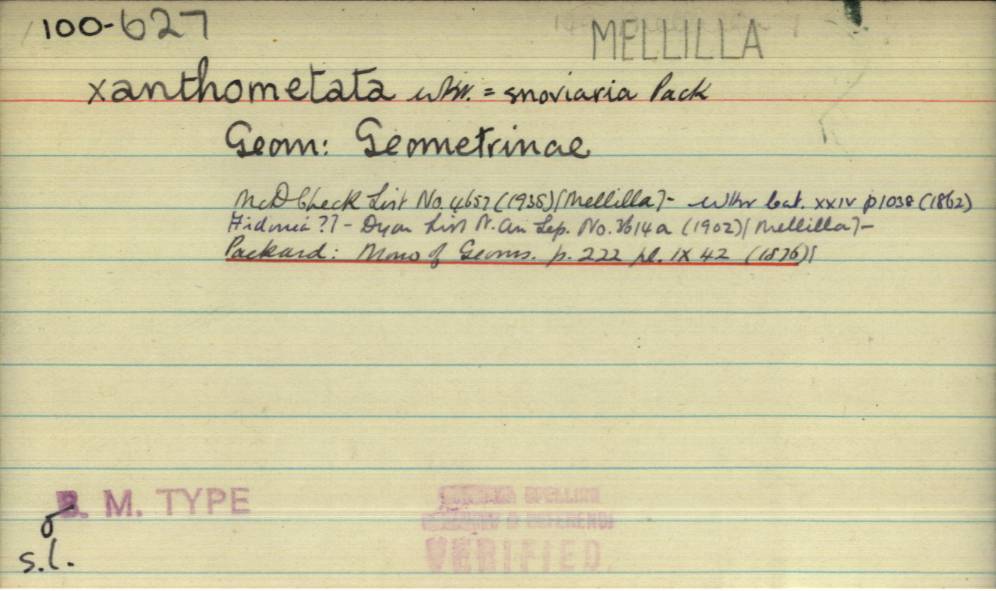 100-627
MELLILLA
xanthometata wkr. = snoviaria Pack
Geom: Geometrinae
McD Check List No. 4657 (1938) [Mellilla] - Wlkr Cat. XXIV p1038 (1862)
Fidonia ?? - Dyar List N. Am Lep. No. 3614a (1902) [Mellilla] -
Packard: Mono of Geoms. p. 222 pl. IX 42 (1876)
B. M. TYPE
♂
s.l.
SPELLING
REFERENDI
VERIFIED.